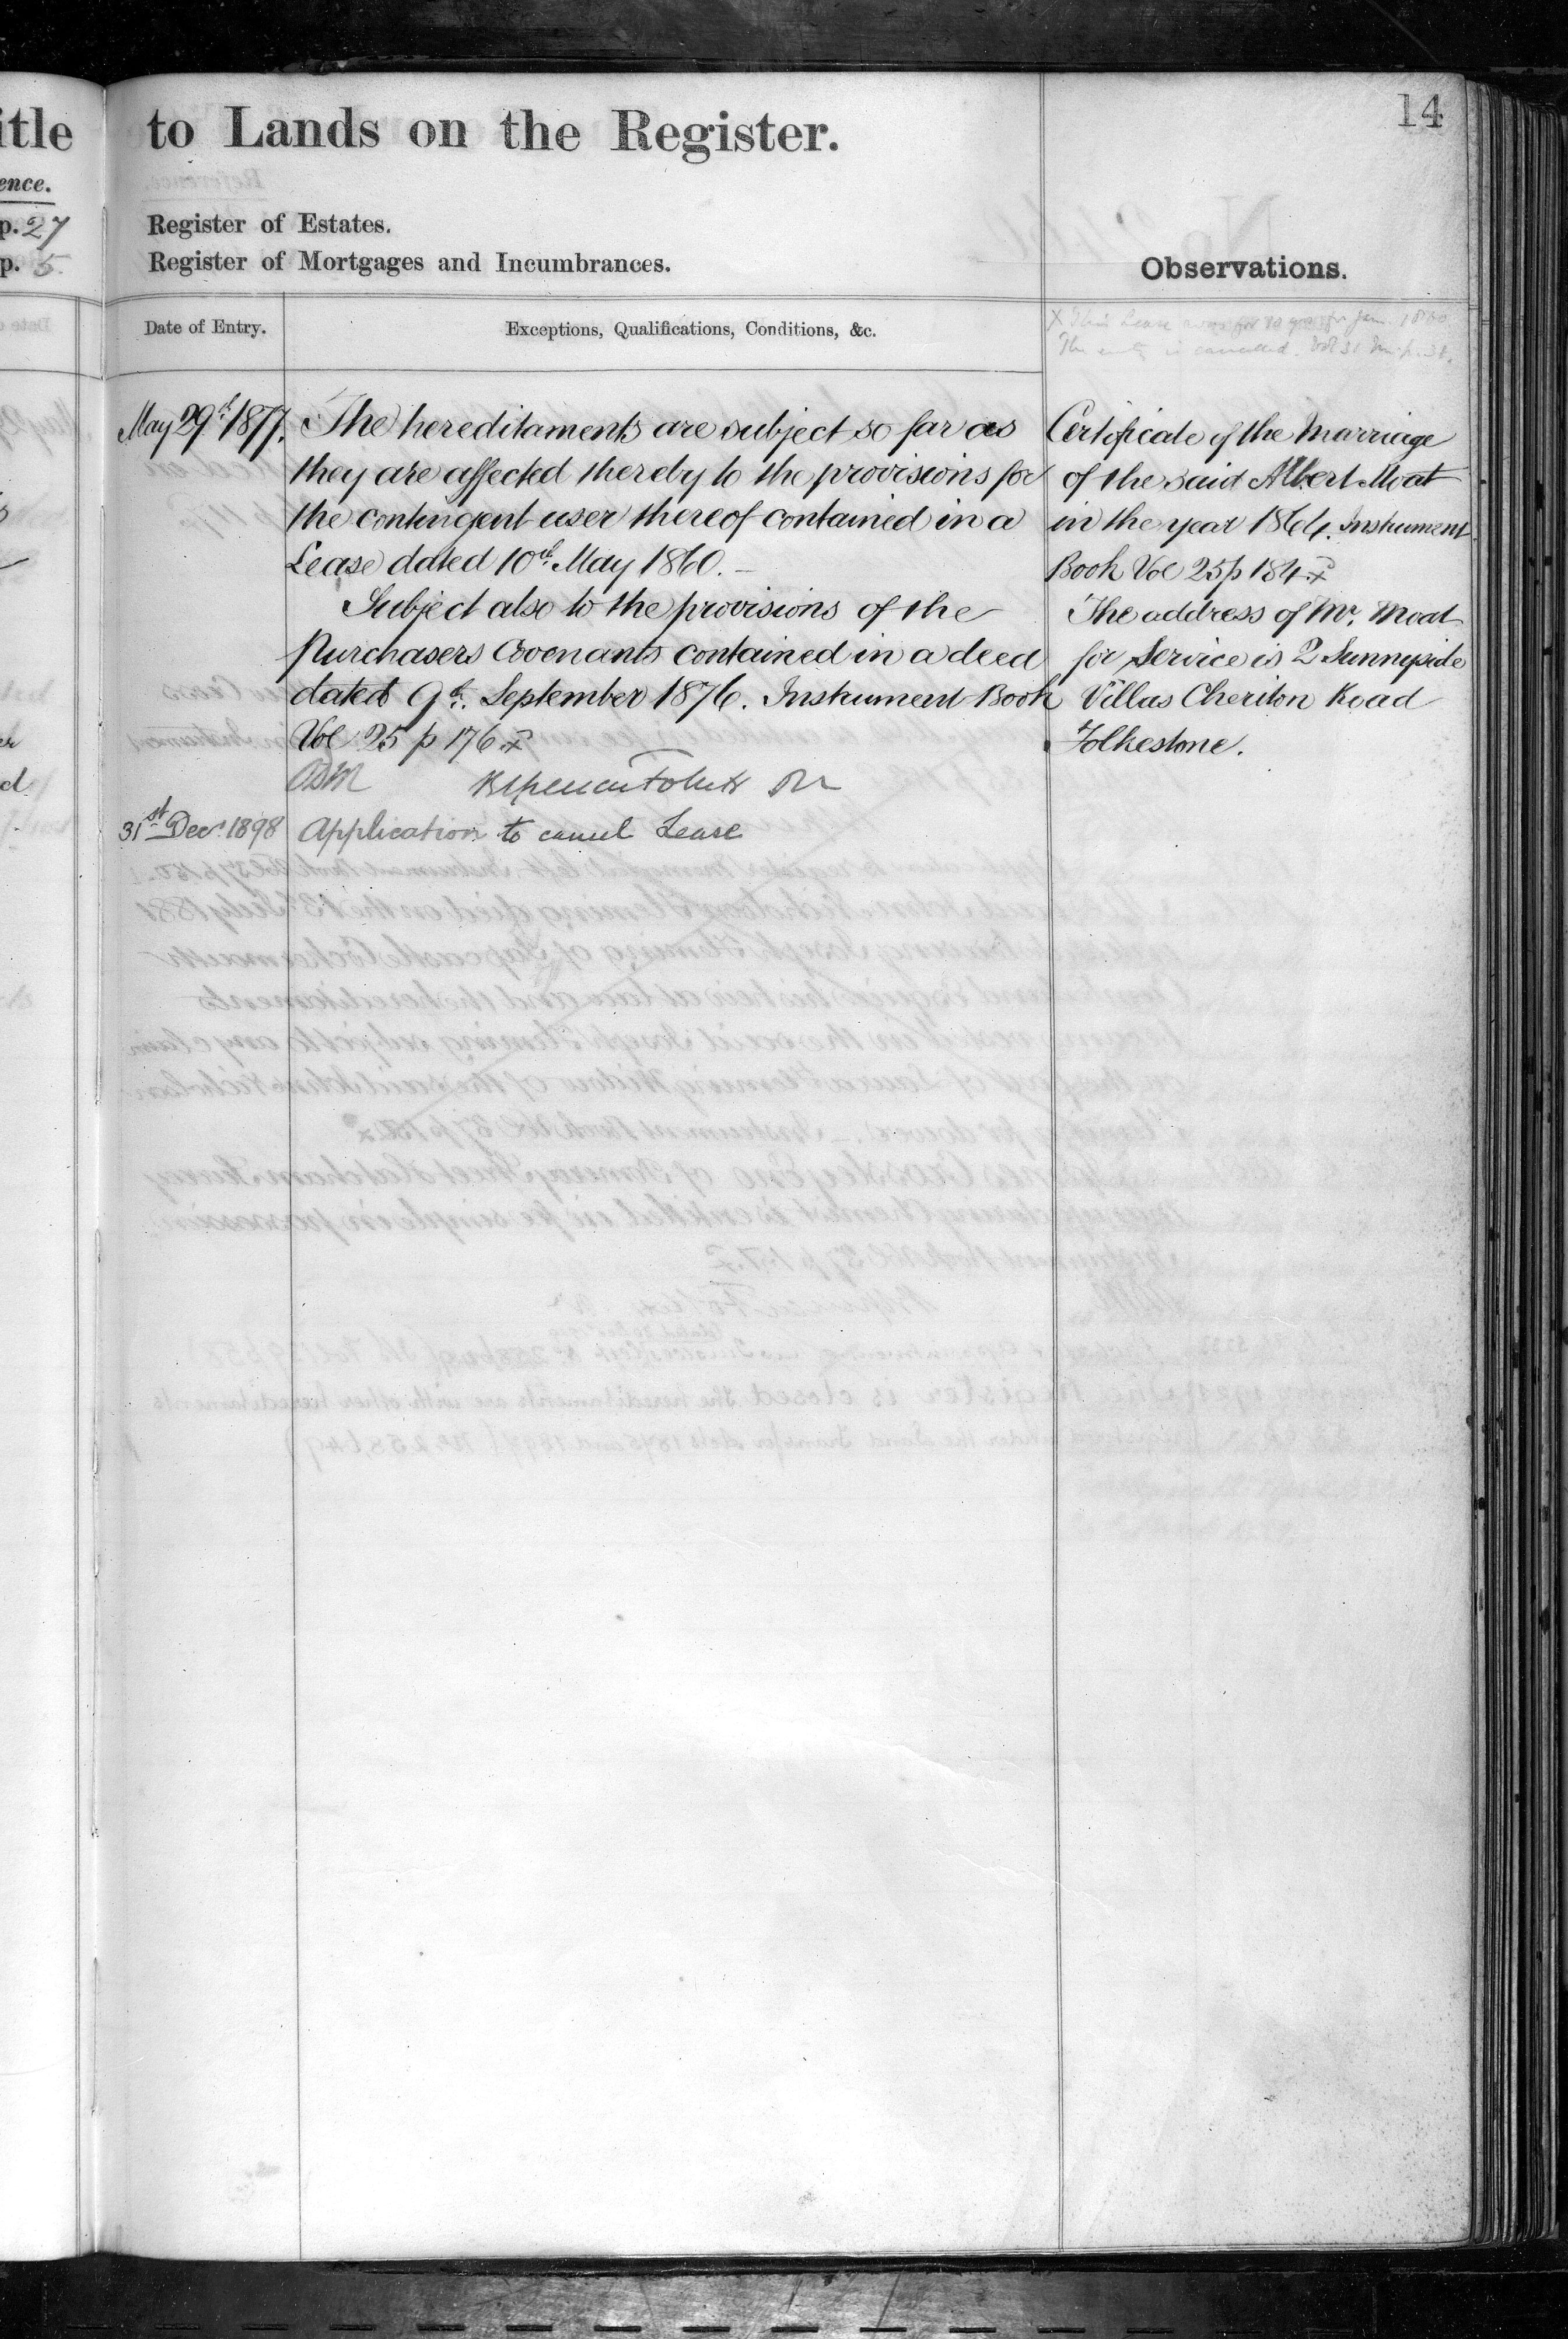 14
itle to Lands on the Register.
ence.
p. 27 Register of Estates.
p. 5. Register of Mortgages and Incumbrances.
Observations.
Date of Entry.
Exceptions, Qualifications, Conditions, &c.
X This Lease was for 10 yrs fr Jan 1860
The entry is cancelled.
May 29th 1877.
The hereditaments are subject so far as
they are affected thereby to the provisions for
the contingent user thereof contained in a
Lease dated 10th May 1860.—
Subject also to the provisions of the
Purchasers Covenants contained in a deed
dated 9th. September 1876. Instrument Book
Vol 25 p 176.
31st Decr 1898
Application to cancel Lease
Certificate of the Marriage
of the said Albert Moat
in the year 1864. Instrument
Book Vol 25 p 184.
The address of Mr. Moat
for Service is 2 Sunnyside
Villas Cheriton Road
Folkestone.